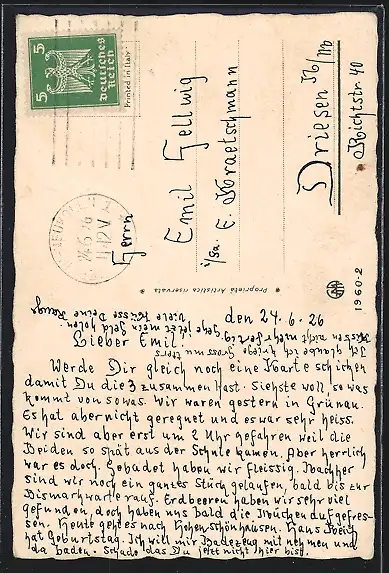 5
5
Deutsches
Reich
Printed in Italy.
24.6.26
11-12V
Herrn
Emil Hellwig
i/Fa. E. Kraetschmann
Driesen N/M
Richtstr 40
* Proprietà Artistica riservata *
1960-2
den 24.6.26
Lieber Emil!
Werde Dir gleich noch eine Karte schicken
damit Du die 3 zusammen hast. Siehste woll so was
kommt von sowas. Wir waren gestern in Grünau.
Es hat aber nicht geregnet und es war sehr heiss.
Wir sind aber erst um 2 Uhr gefahren weil die
Beiden so spät aus der Schule kamen. Aber herrlich
war es doch. Gebadet haben wir fleissig. Nachher
sind wir noch ein ganzes Stück gelaufen, bald bis zur
Bismarckwarte rauf. Erdbeeren haben wir sehr viel
gefunden, doch haben uns bald die Mücken aufgefres-
sen. Heute geht es nach Hohenschönhausen. Hans
hat Geburtstag. Ich will mir Badezeug mit nehmen und
da baden. Schade das Du jetzt nicht hier bist.
Ich glaube ich kriege gross mutters
nicht mehr fertig. Gehe jetzt mein Geld holen.
Viele Küsse Deine